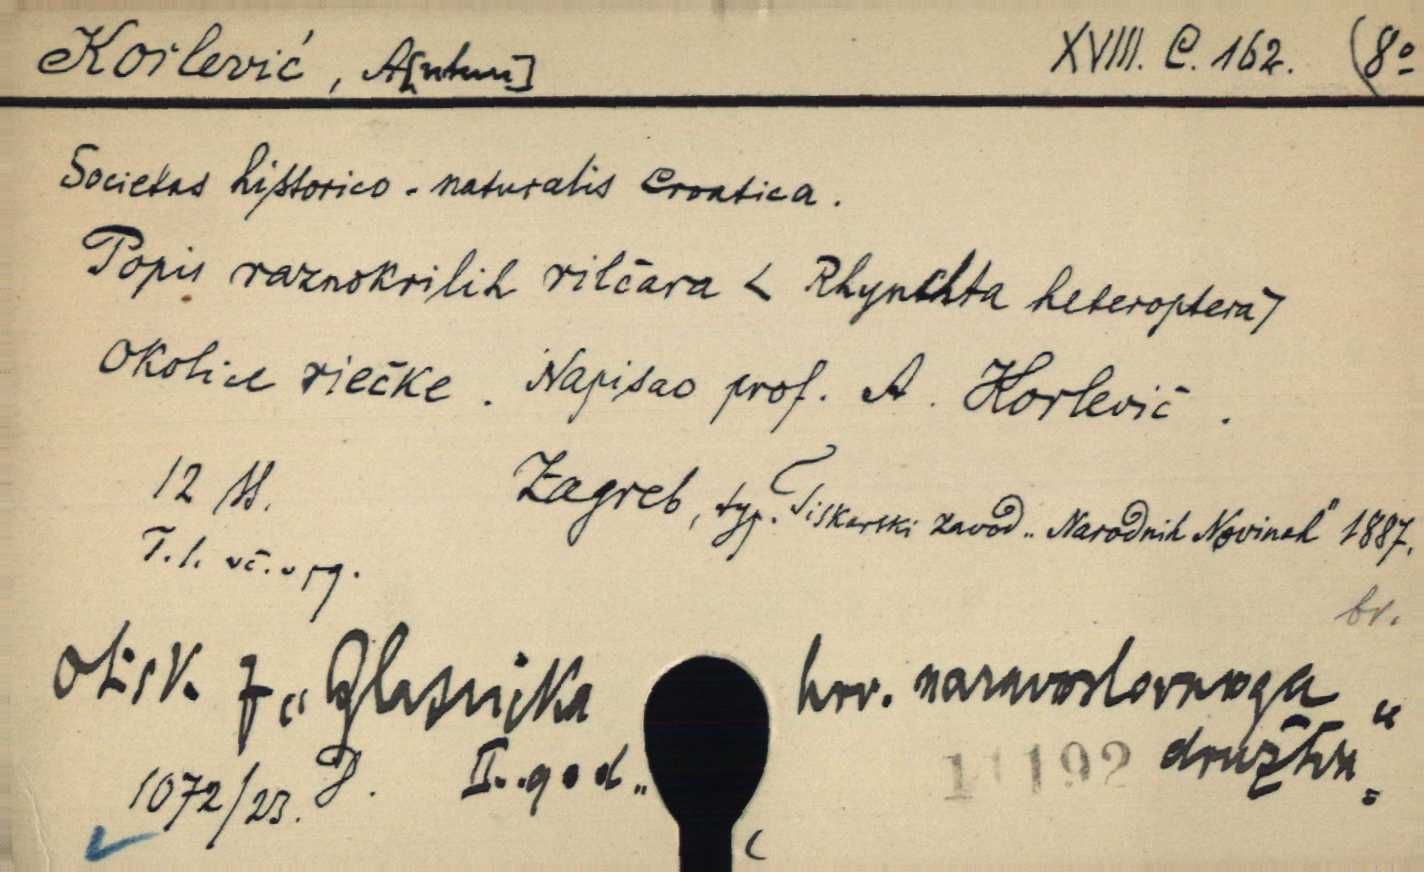 Korlević, A[ntun] XVIII. C. 162. (8º
Societas historico-naturalis Croatica.
Popis raznokrilih rilčara < Rhynchta heteroptera>
Okolice riečke. Napisao prof. A. Korlević.
12 SS. Zagreb, typ. Tiskarski zavod „Narodnih Novinah" 1887.
br.
Otisk. z „Glasnika hrv. naravoslovnoga
družtva"
1072/23. P. II. god.